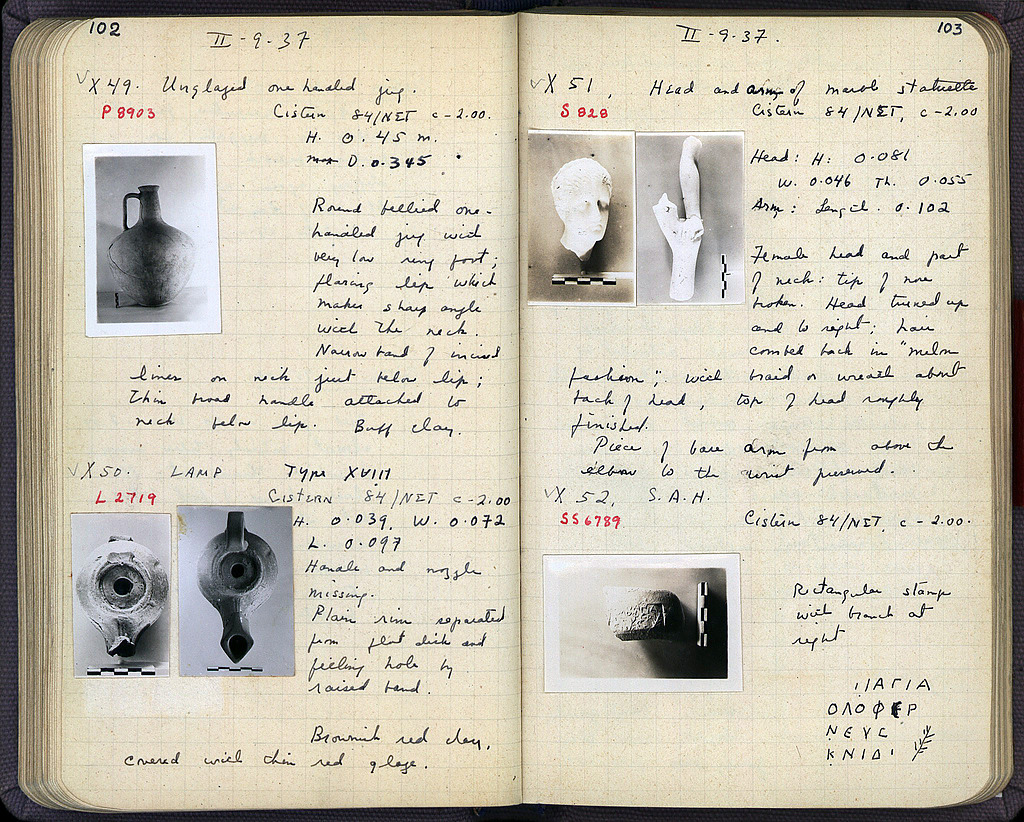 102
II-9-37
X 49. Unglazed one handled jug.
P 8903
Cistern 84/ΝΕΤ c-2.00.
H. 0.45 m.
max D. 0.345
Round bellied one-
handled jug with
very low ring foot;
flaring lip which
makes sharp angle
with the neck.
Narrow band of incised
lines on neck just below lip;
thin broad handle attached to
neck below lip. Buff clay.
X 50. LAMP Type XVIII
L 2719
Cistern 84/ΝΕΤ c-2.00
H. 0.039, W. 0.072
L. 0.097
Handle and nozzle
missing.
Plain rim separated
from flat disk and
filling hole by
raised band.
Brownish red clay,
covered with thin red glaze.
103
II-9-37.
X 51, Head and arm of marble statuette
S 828
Cistern 84/ΝΕΤ, c-2.00
Head: H: 0.081
W. 0.046 Th. 0.055
Arm: Length. 0.102
Female head and part
of neck: tip of nose
broken. Head turned up
and to right; hair
combed back in "melon
fashion"; with braid or wreath about
back of head, top of head roughly
finished.
Piece of bare arm from above the
elbow to the wrist preserved.
X 52, S.A.H.
SS 6789
Cistern 84/ΝΕΤ, c-2.00.
Rectangular stamp
with branch at
right
ΠΑΓΙΑ
ΟΛΟΦΕΡ
ΝΕΥϹ
ΚΝΙΔΙ